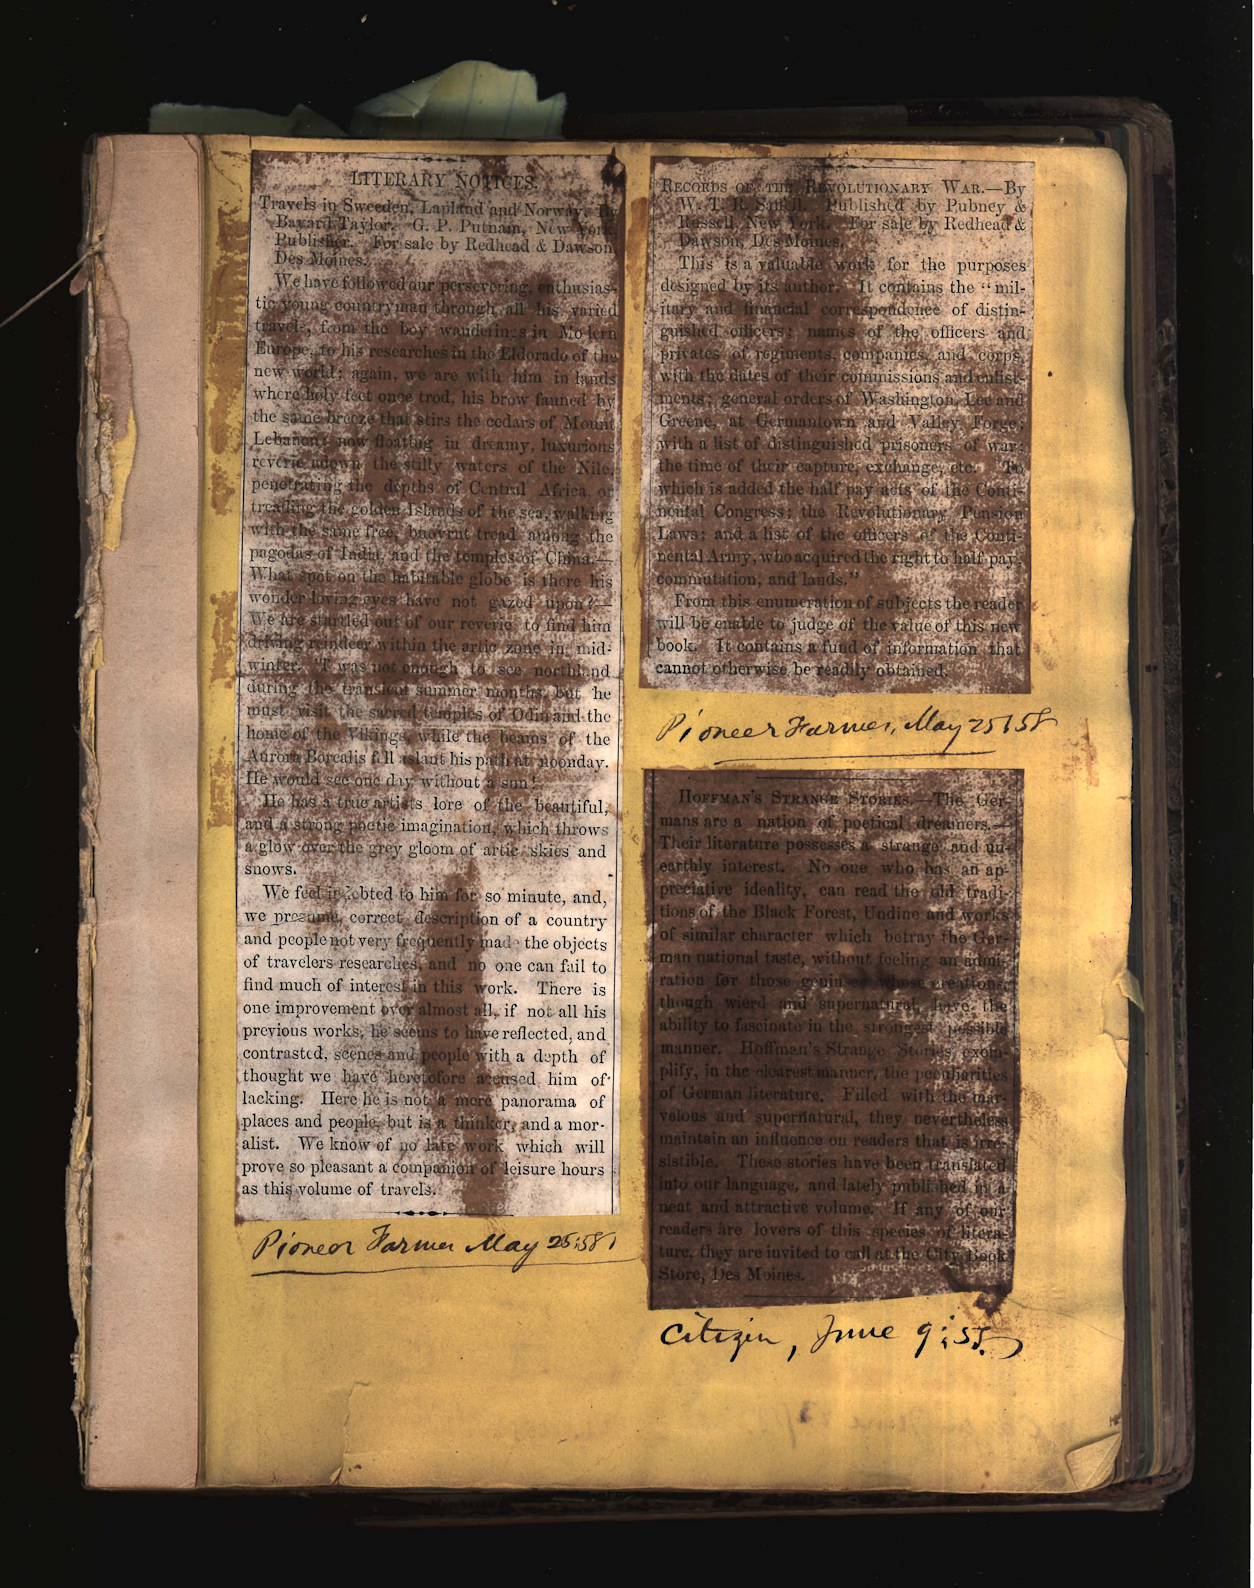 LITERARY NOTICES.
Travels in Sweeden, Lapland and Norway. By
Bayard Taylor. G. P. Putnam, New York,
Publisher. For sale by Redhead & Dawson,
Des Moines.
We have followed our persevering, enthusias-
tic young countryman through all his varied
travels, from the boy wanderings in Modern
Europe, to his researches in the Eldorado of the
new world; again, we are with him in lands
where holy feet once trod, his brow fanned by
the same breeze that stirs the cedars of Mount
Lebanon; now floating in dreamy, luxurious
reverie adown the stilly waters of the Nile,
penetrating the depths of Central Africa, or
treading the golden Islands of the sea, walking
with the same free, buoyant tread among the
pagodas of India, and the temples of China.—
What spot on the habitable globe is there his
wonder loving eyes have not gazed upon?—
We are startled out of our reverie to find him
driving reindeer within the artic zone in mid-
winter. 'T was not enough to see northland
during the transient summer months, but he
must visit the sacred temples of Odin and the
home of the Vikings, while the beams of the
Aurora Borealis fell aslant his path at noonday.
He would see one day without a sun!
He has a true artists lore of the beautiful,
and a strong poetic imagination, which throws
a glow over the grey gloom of artic skies and
snows.
We feel indebted to him for so minute, and,
we presume, correct description of a country
and people not very frequently made the objects
of travelers researches, and no one can fail to
find much of interest in this work. There is
one improvement over almost all, if not all his
previous works, he seems to have reflected, and
contrasted, scenes and people with a depth of
thought we have heretofore accused him of
lacking. Here he is not a mere panorama of
places and people, but is a thinker, and a mor-
alist. We know of no late work which will
prove so pleasant a companion of leisure hours
as this volume of travels.
Pioneer Farmer May 25, 58
RECORDS OF THE REVOLUTIONARY WAR.—By
W. T. R. Saffell. Published by Pubney &
Russell, New York. For sale by Redhead &
Dawson, Des Moines.
This is a valuable work for the purposes
designed by its author. It contains the "mil-
itary and financial correspondence of distin-
guished officers; names of the officers and
privates of regiments, companies, and corps,
with the dates of their commissions and enlist-
ments; general orders of Washington, Lee and
Greene, at Germantown and Valley Forge;
with a list of distinguished prisoners of war;
the time of their capture, exchange, etc. To
which is added the half pay acts of the Conti-
nental Congress; the Revolutionary Pension
Laws; and a list of the officers of the Conti-
nental Army, who acquired the right to half pay,
commutation, and lands."
From this enumeration of subjects the reader
will be enable to judge of the value of this new
book. It contains a fund of information that
cannot otherwise be readily obtained.
Pioneer Farmer, May 25, 58
HOFFMAN'S STRANGE STORIES.—The Ger-
mans are a nation of poetical dreamers.—
Their literature possesses a strange and un-
earthly interest. No one who has an ap-
preciative ideality, can read the old tradi-
tions of the Black Forest, Undine and works
of similar character which betray the Ger-
man national taste, without feeling an admi-
ration for those geniuses whose creations,
though wierd and supernatural, have the
ability to fascinate in the strongest possible
manner. Hoffman's Strange Stories exem-
plify, in the clearest manner, the peculiarities
of German literature. Filled with the mar-
velous and supernatural, they nevertheless
maintain an influence on readers that is irre-
sistible. These stories have been translated
into our language, and lately published in a
neat and attractive volume. If any of our
readers are lovers of this species of litera-
ture, they are invited to call at the City Book
Store, Des Moines.
Citizen, June 9, 58